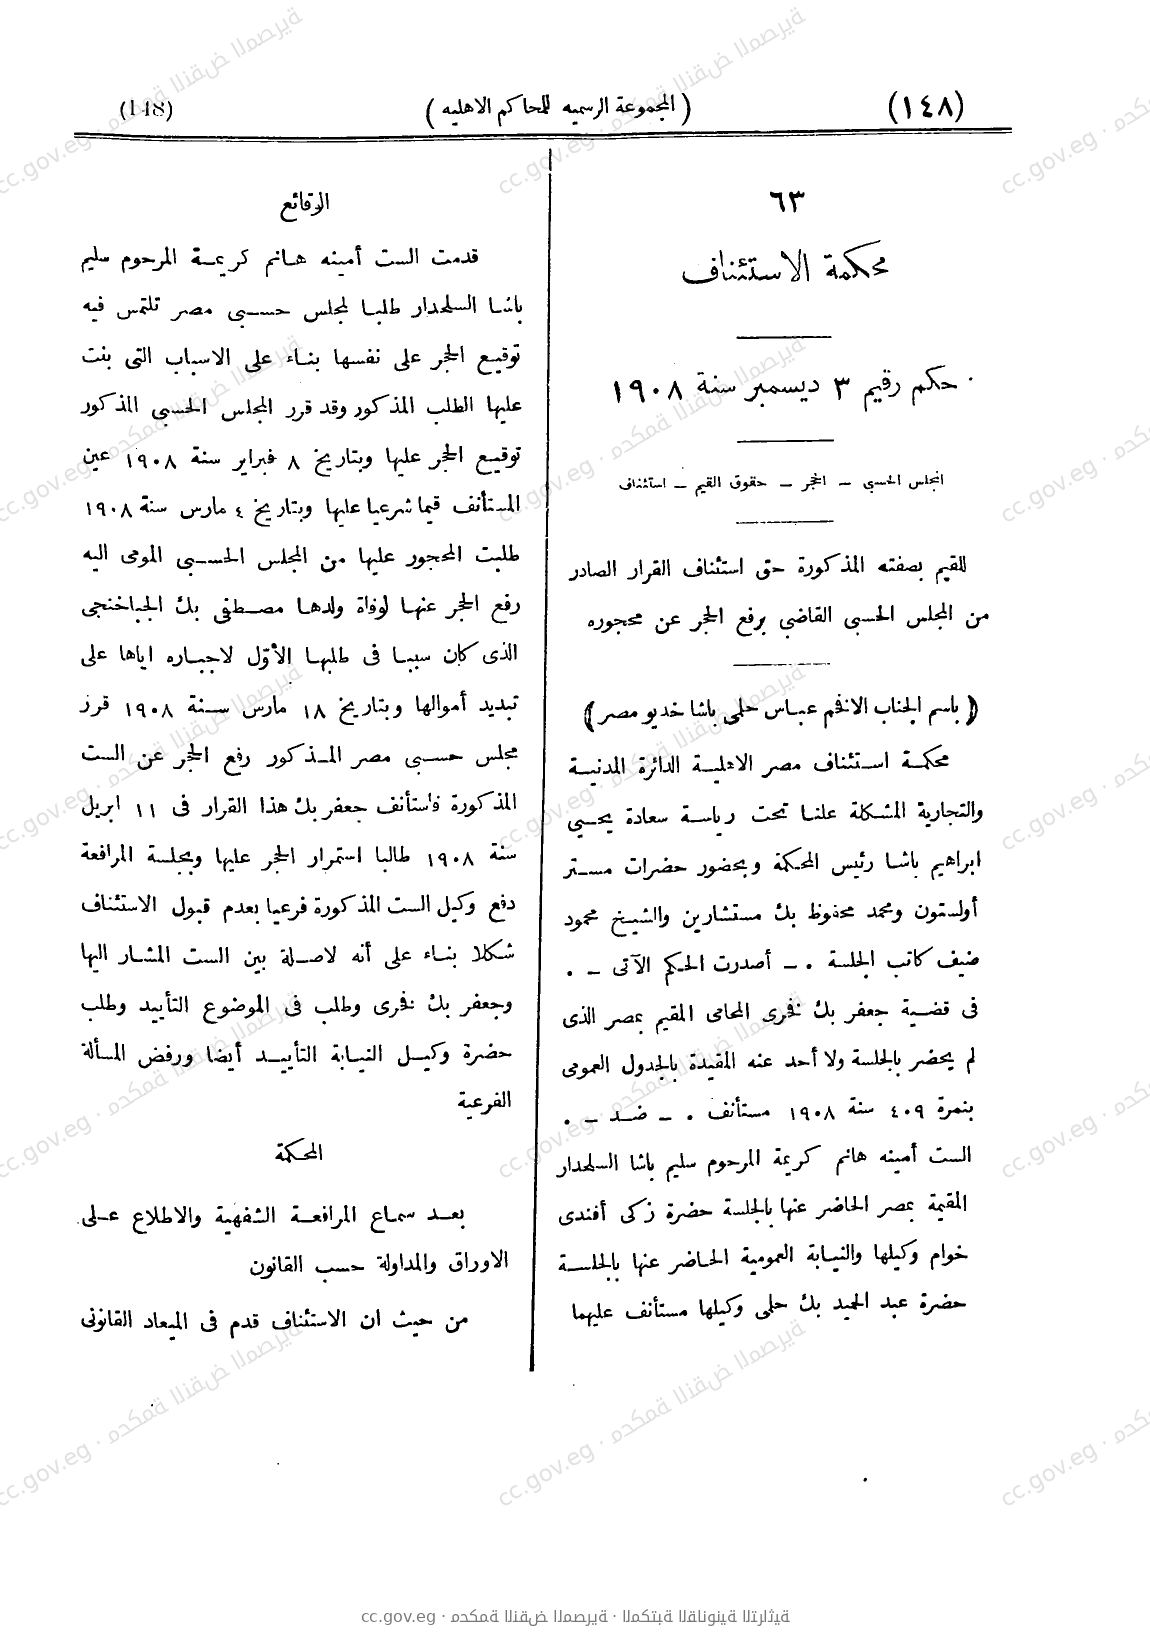 (١٤٨) ( المجموعة الرسميه للمحاكم الاهليه ) (148)
٦٣
محكمة الاستئناف
حكم رقيم ٣ ديسمبر سنة ١٩٠٨
المجلس الحسبي – الحجر – حقوق القيم – استئناف
للقيم بصفته المذكورة حق استئناف القرار الصادر
من المجلس الحسبى القاضي برفع الحجر عن محجوره
( باسم الجناب الافخم عباس حلمى باشا خديو مصر )
محكمة استئناف مصر الاهلية الدائرة المدنية
والتجارية المشكلة علنا تحت رياسة سعادة يحيى
ابراهيم باشا رئيس المحكمة وبحضور حضرات مستر
أولستون ومحمد محفوظ بك مستشارين والشيخ محمود
ضيف كاتب الجلسة . – أصدرت الحكم الآتى – .
فى قضية جعفر بك فخرى المحامى المقيم بمصر الذى
لم يحضر بالجلسة ولا أحد عنه المقيدة بالجدول العمومى
بنمرة ٤٠٩ سنة ١٩٠٨ مستأنف . – ضد – .
الست أمينه هانم كريمة المرحوم سليم باشا السلحدار
المقيمة بمصر الحاضر عنها بالجلسة حضرة زكى أفندى
خوام وكيلها والنيابة العمومية الحاضر عنها بالجلسة
حضرة عبد الحميد بك حلمى وكيلها مستأنف عليهما
الوقائع
قدمت الست أمينه هانم كريمة المرحوم سليم
باشا السلحدار طلبا لمجلس حسبى مصر تلتمس فيه
توقيع الحجر على نفسها بناء على الاسباب التى بنت
عليها الطلب المذكور وقد قرر المجلس الحسبي المذكور
توقيع الحجر عليها وبتاريخ ٨ فبراير سنة ١٩٠٨ عين
المستأنف قيما شرعيا عليها وبتاريخ ٤ مارس سنة ١٩٠٨
طلبت المحجور عليها من المجلس الحسبى المومى اليه
رفع الحجر عنها لوفاة ولدها مصطفى بك الجباخنجى
الذى كان سببا فى طلبها الأوّل لاجباره اياها على
تبديد أموالها وبتاريخ ١٨ مارس سنة ١٩٠٨ قرر
مجلس حسبى مصر المذكور رفع الحجر عن الست
المذكورة فاستأنف جعفر بك هذا القرار فى ١١ ابريل
سنة ١٩٠٨ طالبا استمرار الحجر عليها وبجلسة المرافعة
دفع وكيل الست المذكورة فرعيا بعدم قبول الاستئناف
شكلا بناء على أنه لاصلة بين الست المشار اليها
وجعفر بك فخرى وطلب فى الموضوع التأييد وطلب
حضرة وكيل النيابة التأييد أيضا ورفض المسألة
الفرعية
المحكمة
بعد سماع المرافعة الشفهية والاطلاع على
الاوراق والمداولة حسب القانون
من حيث ان الاستئناف قدم فى الميعاد القانونى
cc.gov.eg · محكمة النقض المصرية · المكتبة القانونية التراثية